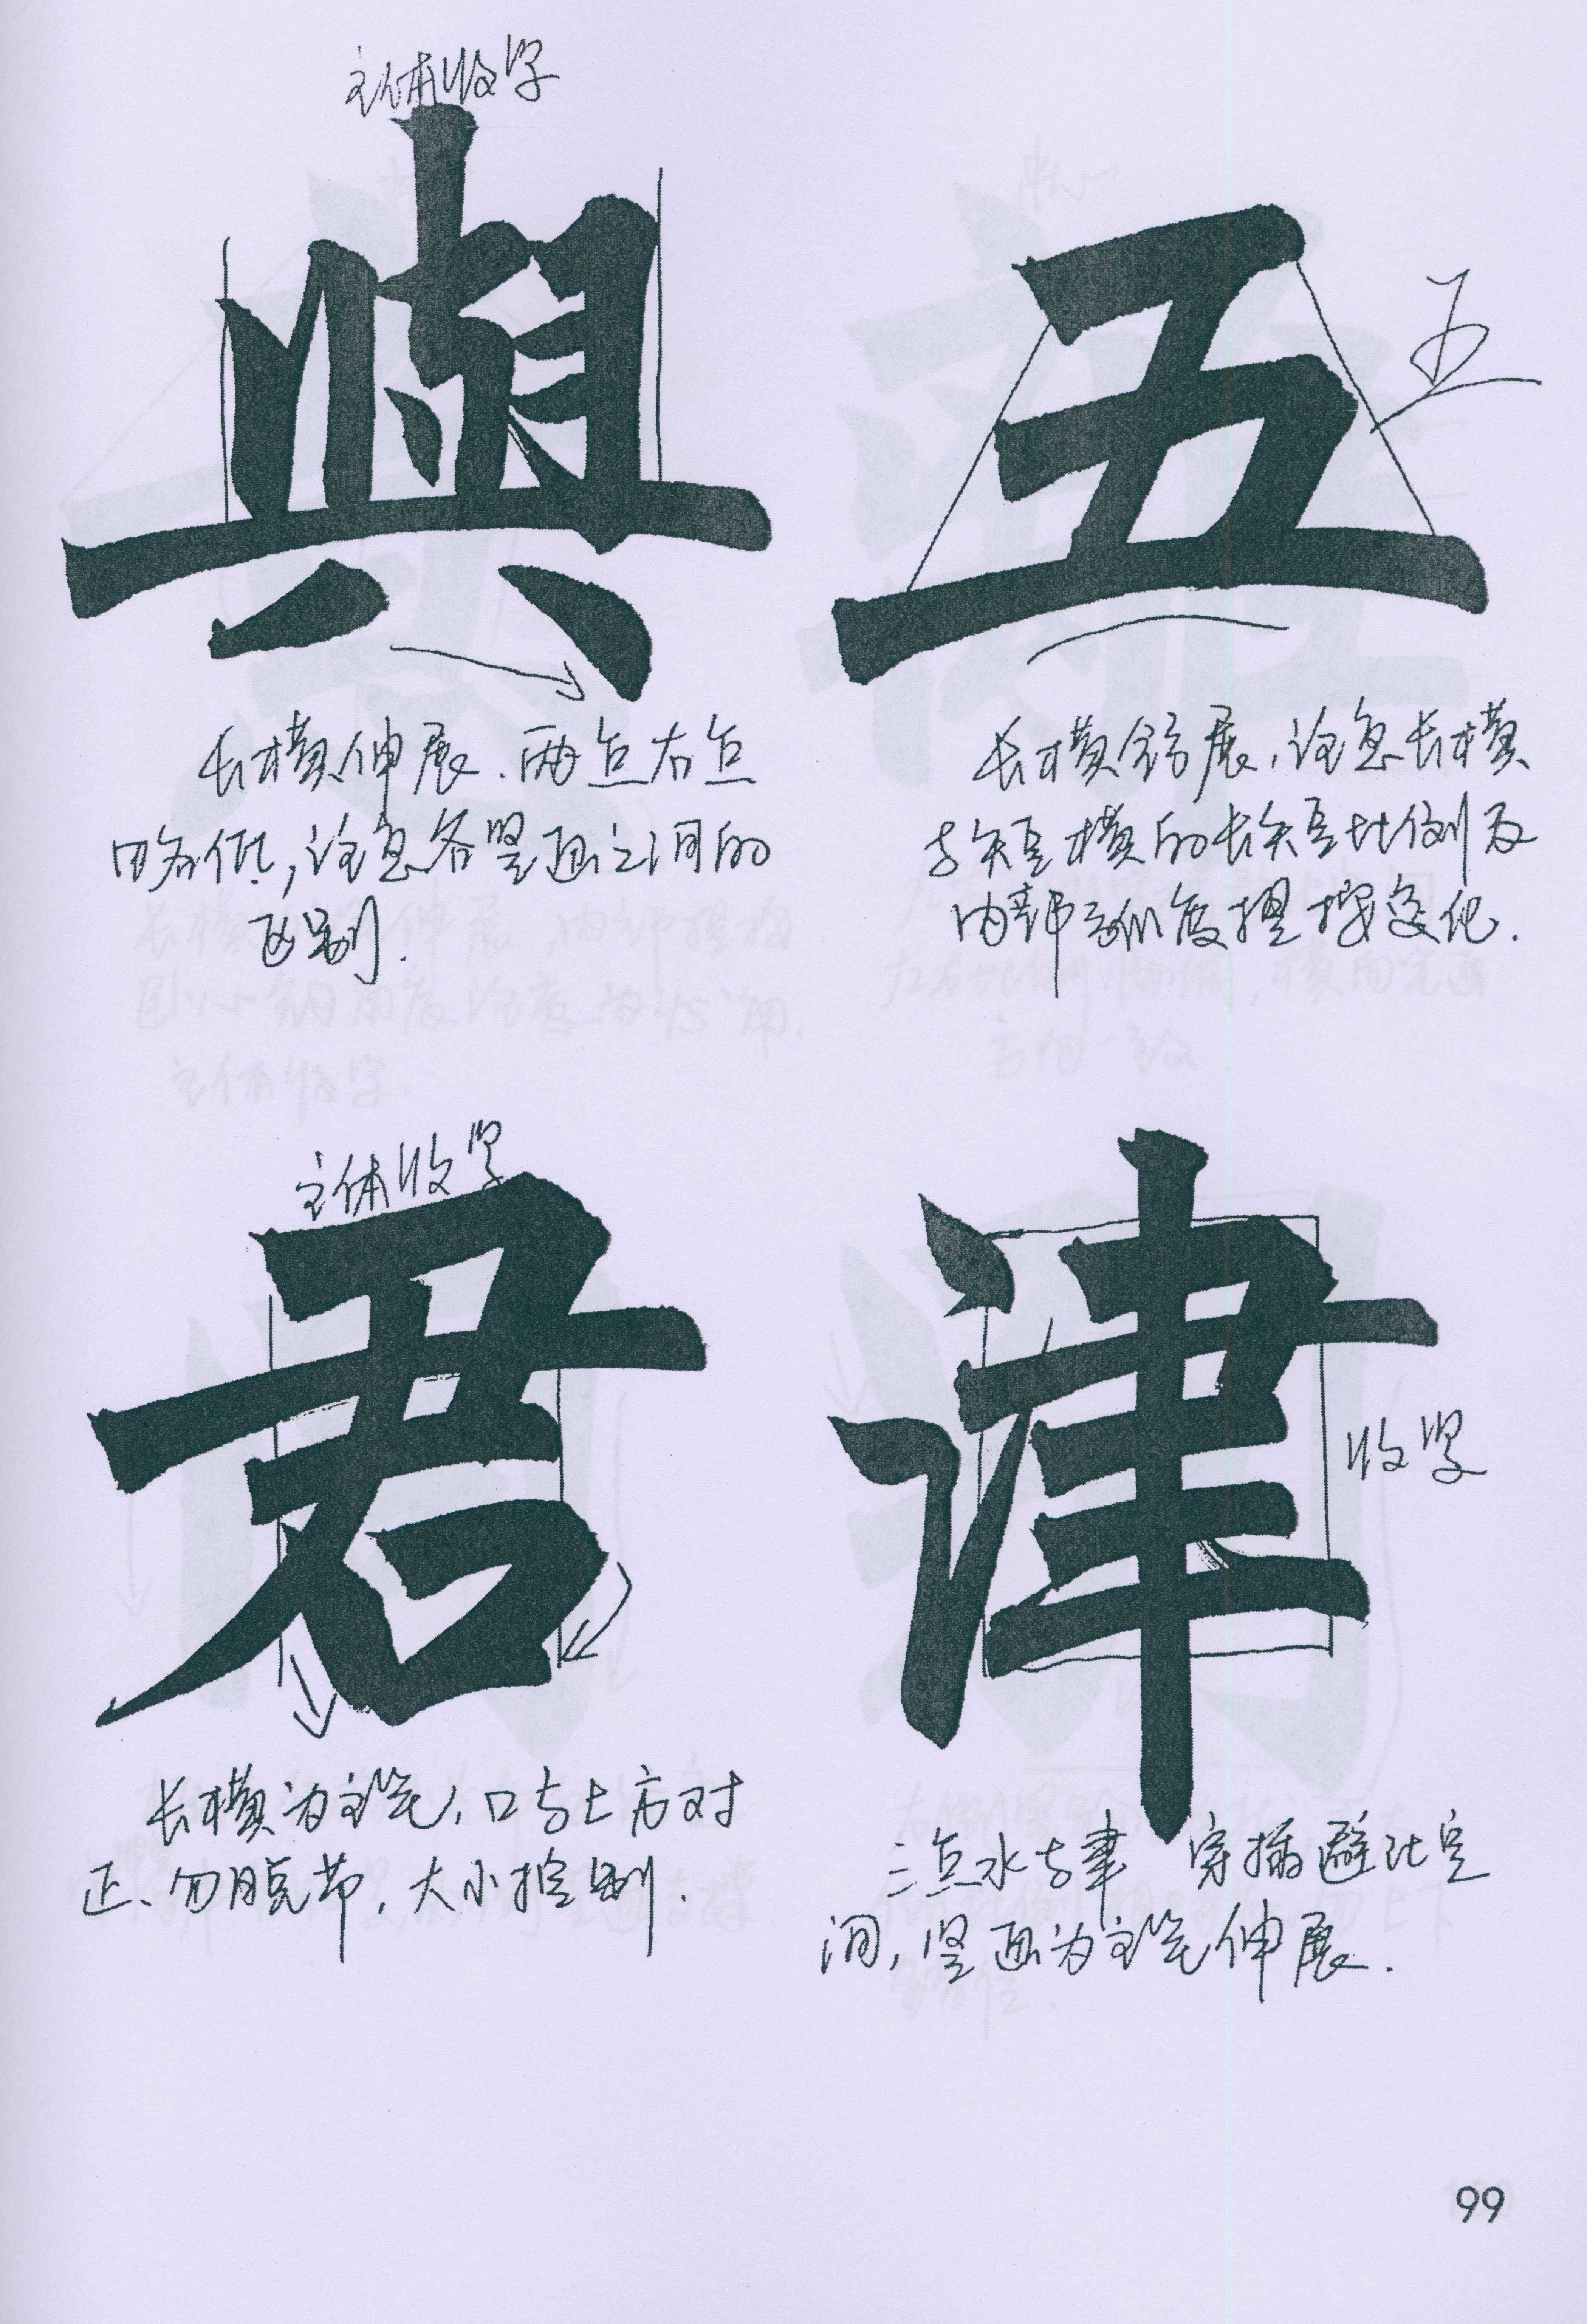 主体收紧
與
长横伸展.两点右点
略低,注意各竖画之间的
区别.
五
五
长横舒展,注意长横
与短横的长短比例及
内部 角度 变化.
主体收紧
君
长横为主笔,口与上方对
正、勿脱节,大小控制.
津
收紧
三点水与聿 穿插避让空
间,竖画为主笔伸展.
99